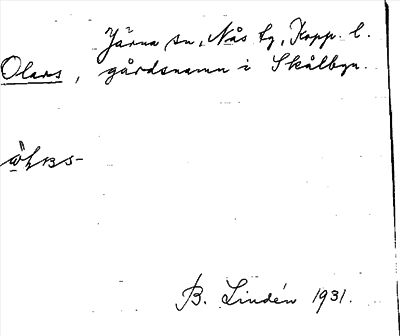 Järna sn, Nås tg, Kopp. l.
Olars, gårdsnamn i Skålbyn.
B. Lindén 1931.